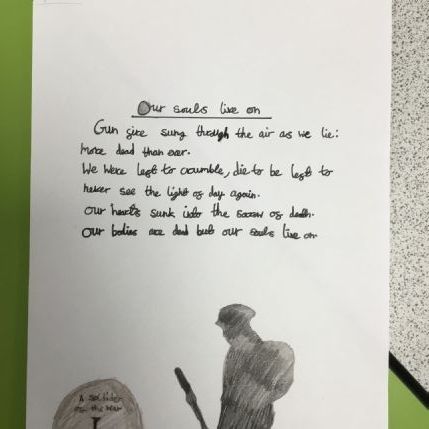 Our souls live on
Gun fire sung through the air as we lie:
More dead than ever.
We were left to crumble, die to be left to
never see the light of day again.
Our hearts sunk into the sorrow of death.
Our bodies are dead but our souls live on
A soldier
of the war
I